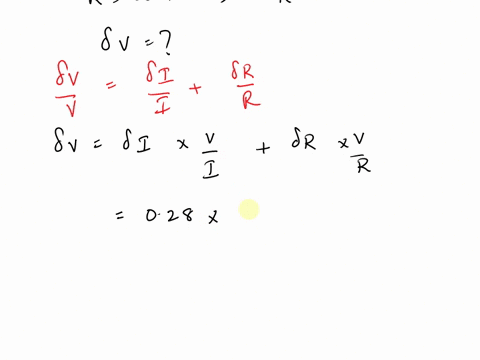 δV = ?
δV/V = δI/I + δR/R
δV = δI × V/I + δR × V/R
= 0.28 ×